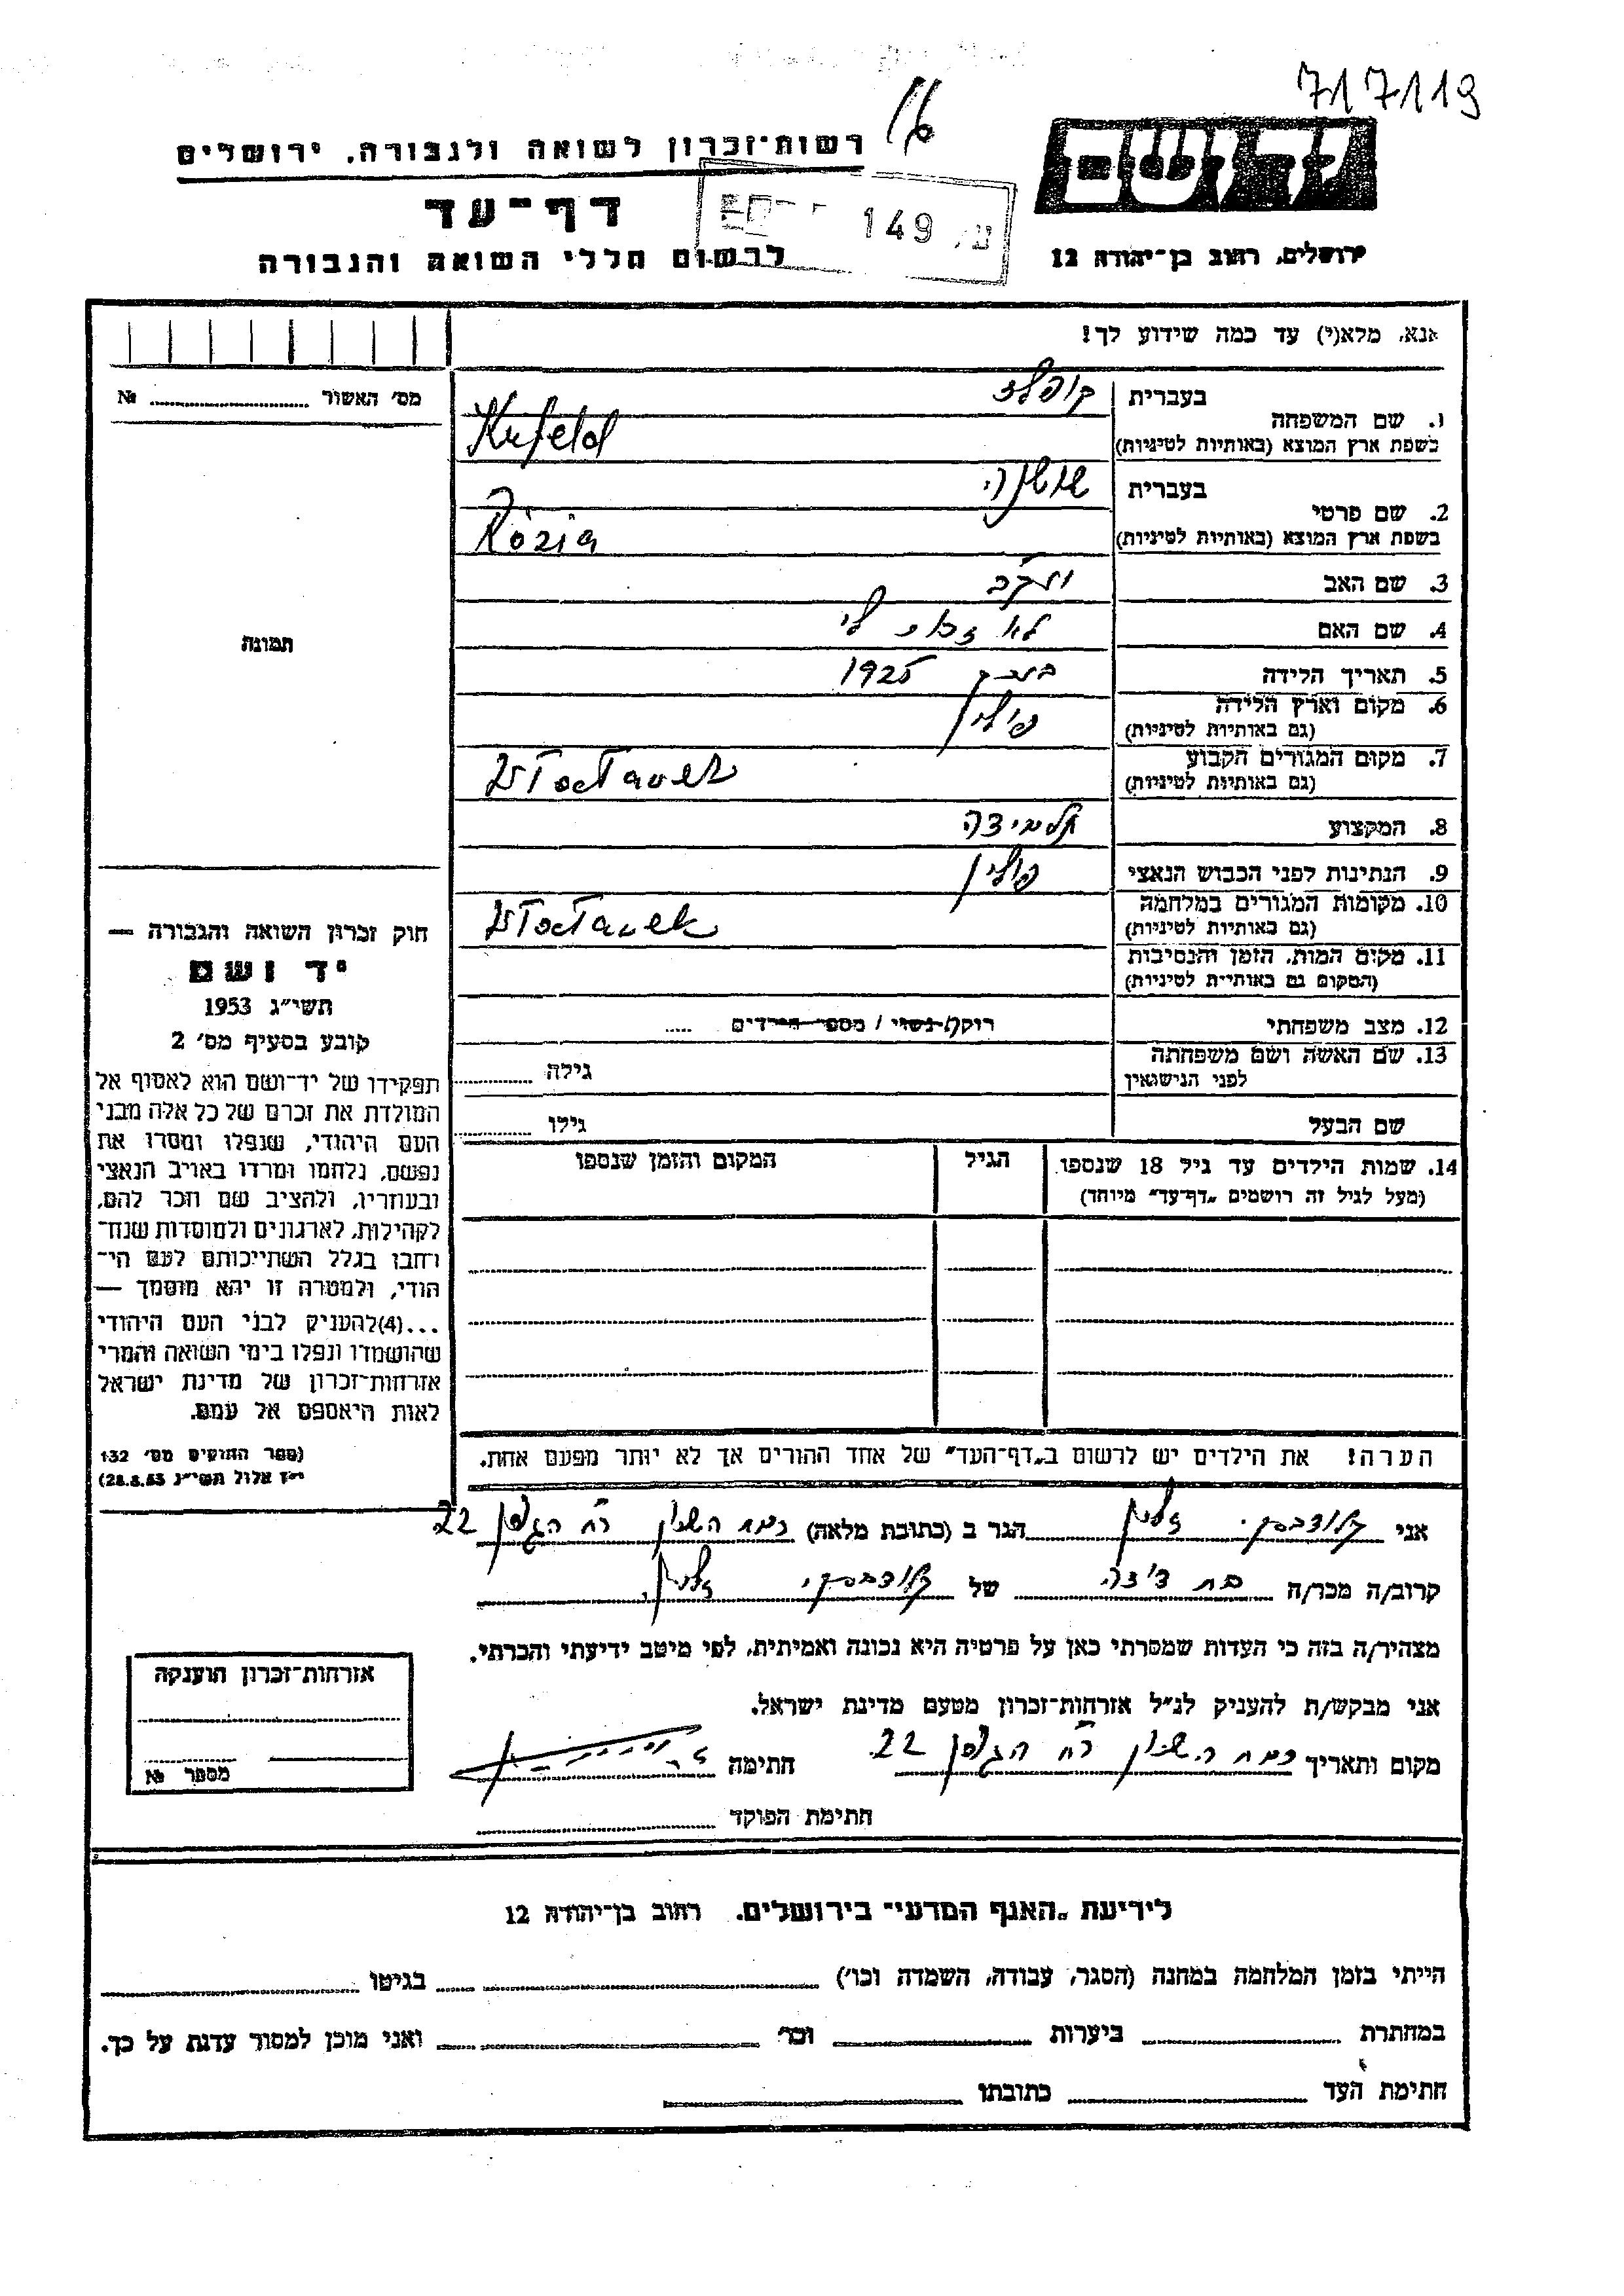 717119
16
רשות־זכרון לשואה ולגבורה, ירושלים
דף־עד
149
לרשום חללי השואה והגבורה
ידושם
ירושלים, רחוב בן־יהודה 12
אנא, מלא(י) עד כמה שידוע לך!
מס׳ האשור ........ №
תמונה
חוק זכרון השואה והגבורה —
יד ושם
תשי״ג 1953
קובע בסעיף מס׳ 2
תפקידו של יד־ושם הוא לאסוף אל
המולדת את זכרם של כל אלה מבני
העם היהודי, שנפלו ומסרו את
נפשם, נלחמו ומרדו באויב הנאצי
ובעוזריו, ולהציב שם וזכר להם,
לקהילות, לארגונים ולמוסדות שנח־
רחבו בגלל השתייכותם לעם הי־
הודי, ולמטרה זו יהא מוסמך —
...(4)להעניק לבני העם היהודי
שהושמדו ונפלו בימי השואה והמרי
אזרחות־זכרון של מדינת ישראל
לאות היאספם אל עמם.
(ספר החוקים מס׳ 132
י״ז אלול תשי״ג 28.8.53)
בעברית קופלד
1. שם המשפחה
בשפת ארץ המוצא (באותיות לטיניות) Kufeld
בעברית שושנה
2. שם פרטי
בשפת ארץ המוצא (באותיות לטיניות) Rózia
3. שם האב יעקב
4. שם האם לא זכור לי
5. תאריך הלידה בערך 1925
6. מקום וארץ הלידה פולין
(גם באותיות לטיניות)
7. מקום המגורים הקבוע
(גם באותיות לטיניות)
8. המקצוע תלמידה
9. הנתינות לפני הכבוש הנאצי פולין
10. מקומות המגורים במלחמה
(גם באותיות לטיניות)
11. מקום המות, הזמן והנסיבות
(המקום גם באותיות לטיניות)
12. מצב משפחתי רווק/ נשוי / מספר הילדים .....
13. שם האשה ושם משפחתה
לפני הנישואין גילה
שם הבעל גילו
14. שמות הילדים עד גיל 18 שנספו הגיל המקום והזמן שנספו
(מעל לגיל זה רושמים „דף־עד״ מיוחד)
הערה! את הילדים יש לרשום ב„דף־העד״ של אחד ההורים אך לא יותר מפעם אחת.
אני הגר ב (כתובת מלאה) רמת השרון רח׳ הגפן 22
קרוב/ה מכר/ה בת דודה של
מצהיר/ה בזה כי העדות שמסרתי כאן על פרטיה היא נכונה ואמיתית, לפי מיטב ידיעתי והכרתי.
אני מבקש/ת להעניק לנ״ל אזרחות־זכרון מטעם מדינת ישראל.
מקום ותאריך רמת השרון רח׳ הגפן 22 חתימה
חתימת הפוקד
אזרחות־זכרון הוענקה
מספר №
לידיעת „האגף המדעי״ בירושלים, רחוב בן־יהודה 12
הייתי בזמן המלחמה במחנה (הסגר, עבודה, השמדה וכו׳) בגיטו
במחתרת ביערות וכו׳ ואני מוכן למסור עדות על כך.
חתימת העד כתובתו